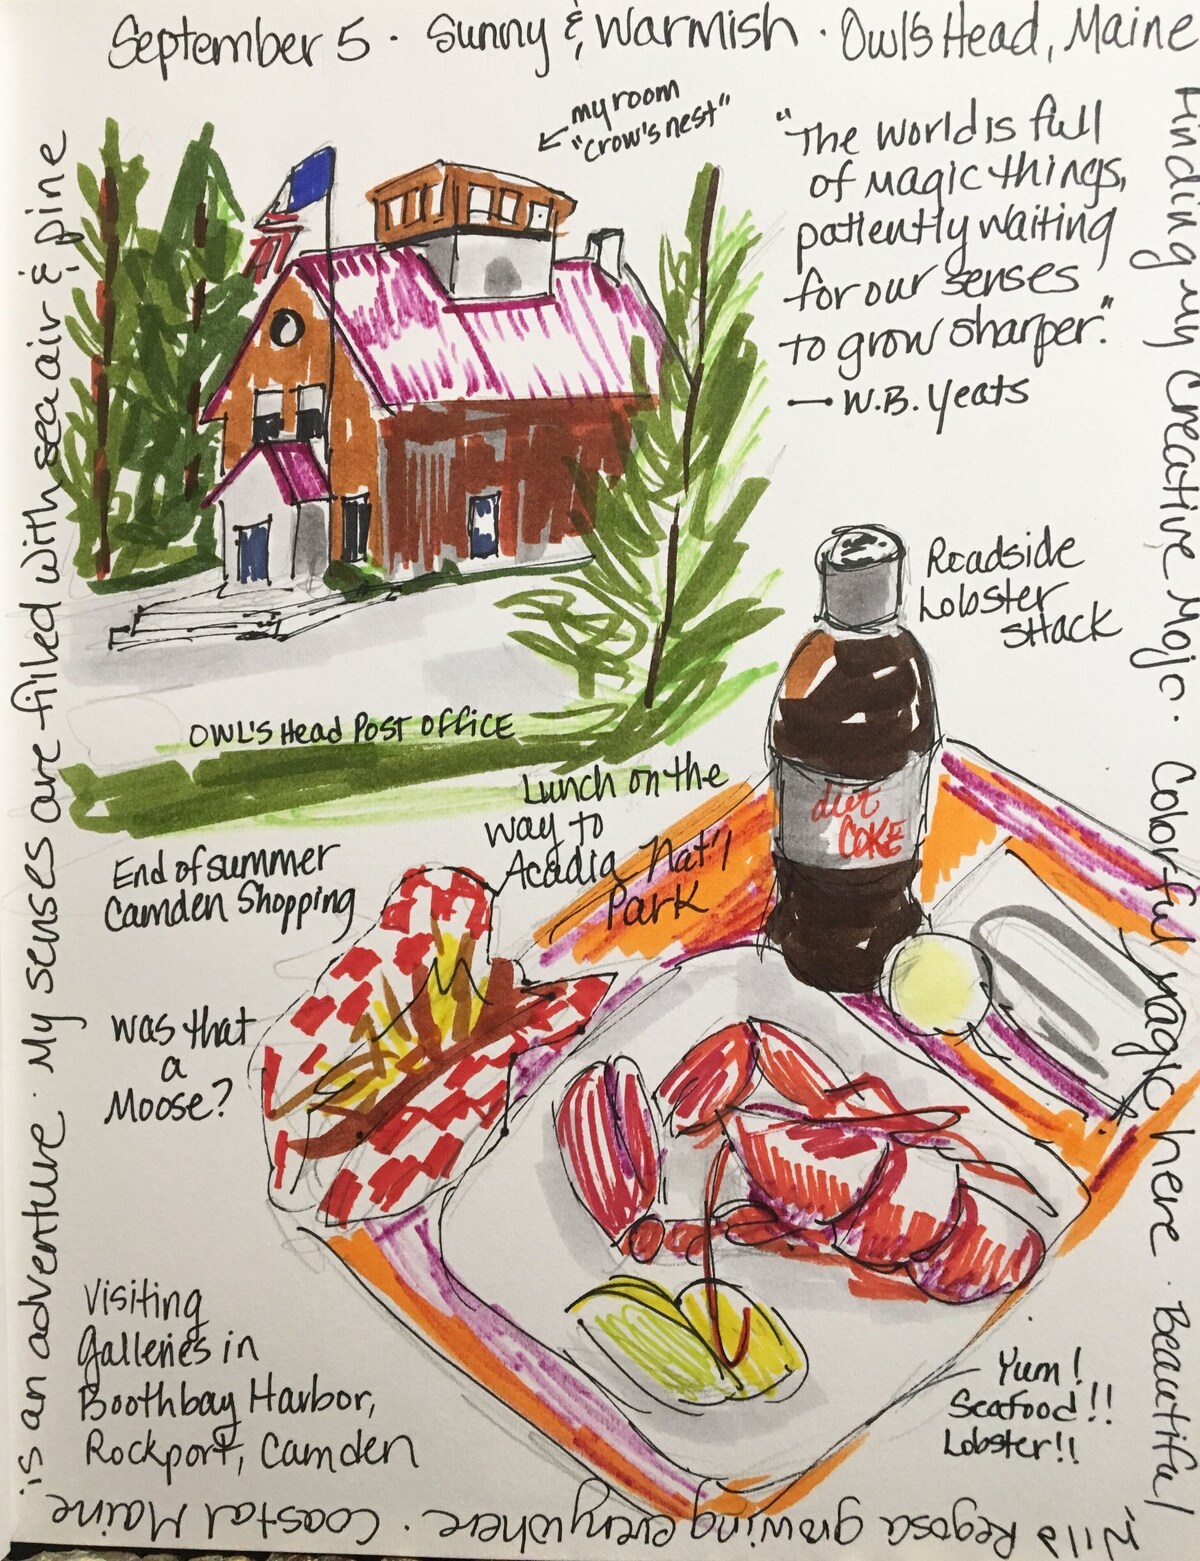 September 5 · Sunny & Warmish · Owl's Head, Maine
my room
"crow's nest"
"The world is full
of magic things,
patiently waiting
for our senses
to grow sharper."
— W.B. Yeats
Roadside
Lobster
Shack
OWL'S Head Post Office
Lunch on the
way to
Acadia Nat'l
Park
diet
COKE
End of summer
Camden Shopping
was that
a
Moose?
Visiting
Galleries in
Boothbay Harbor,
Rockport, Camden
Yum!
Seafood!!
Lobster!!
Finding my Creative Mojo · Colorful magic here · Beautiful
Regosa growing everywhere · Coastal Maine
is an adventure · My senses are filled with sea air & pine